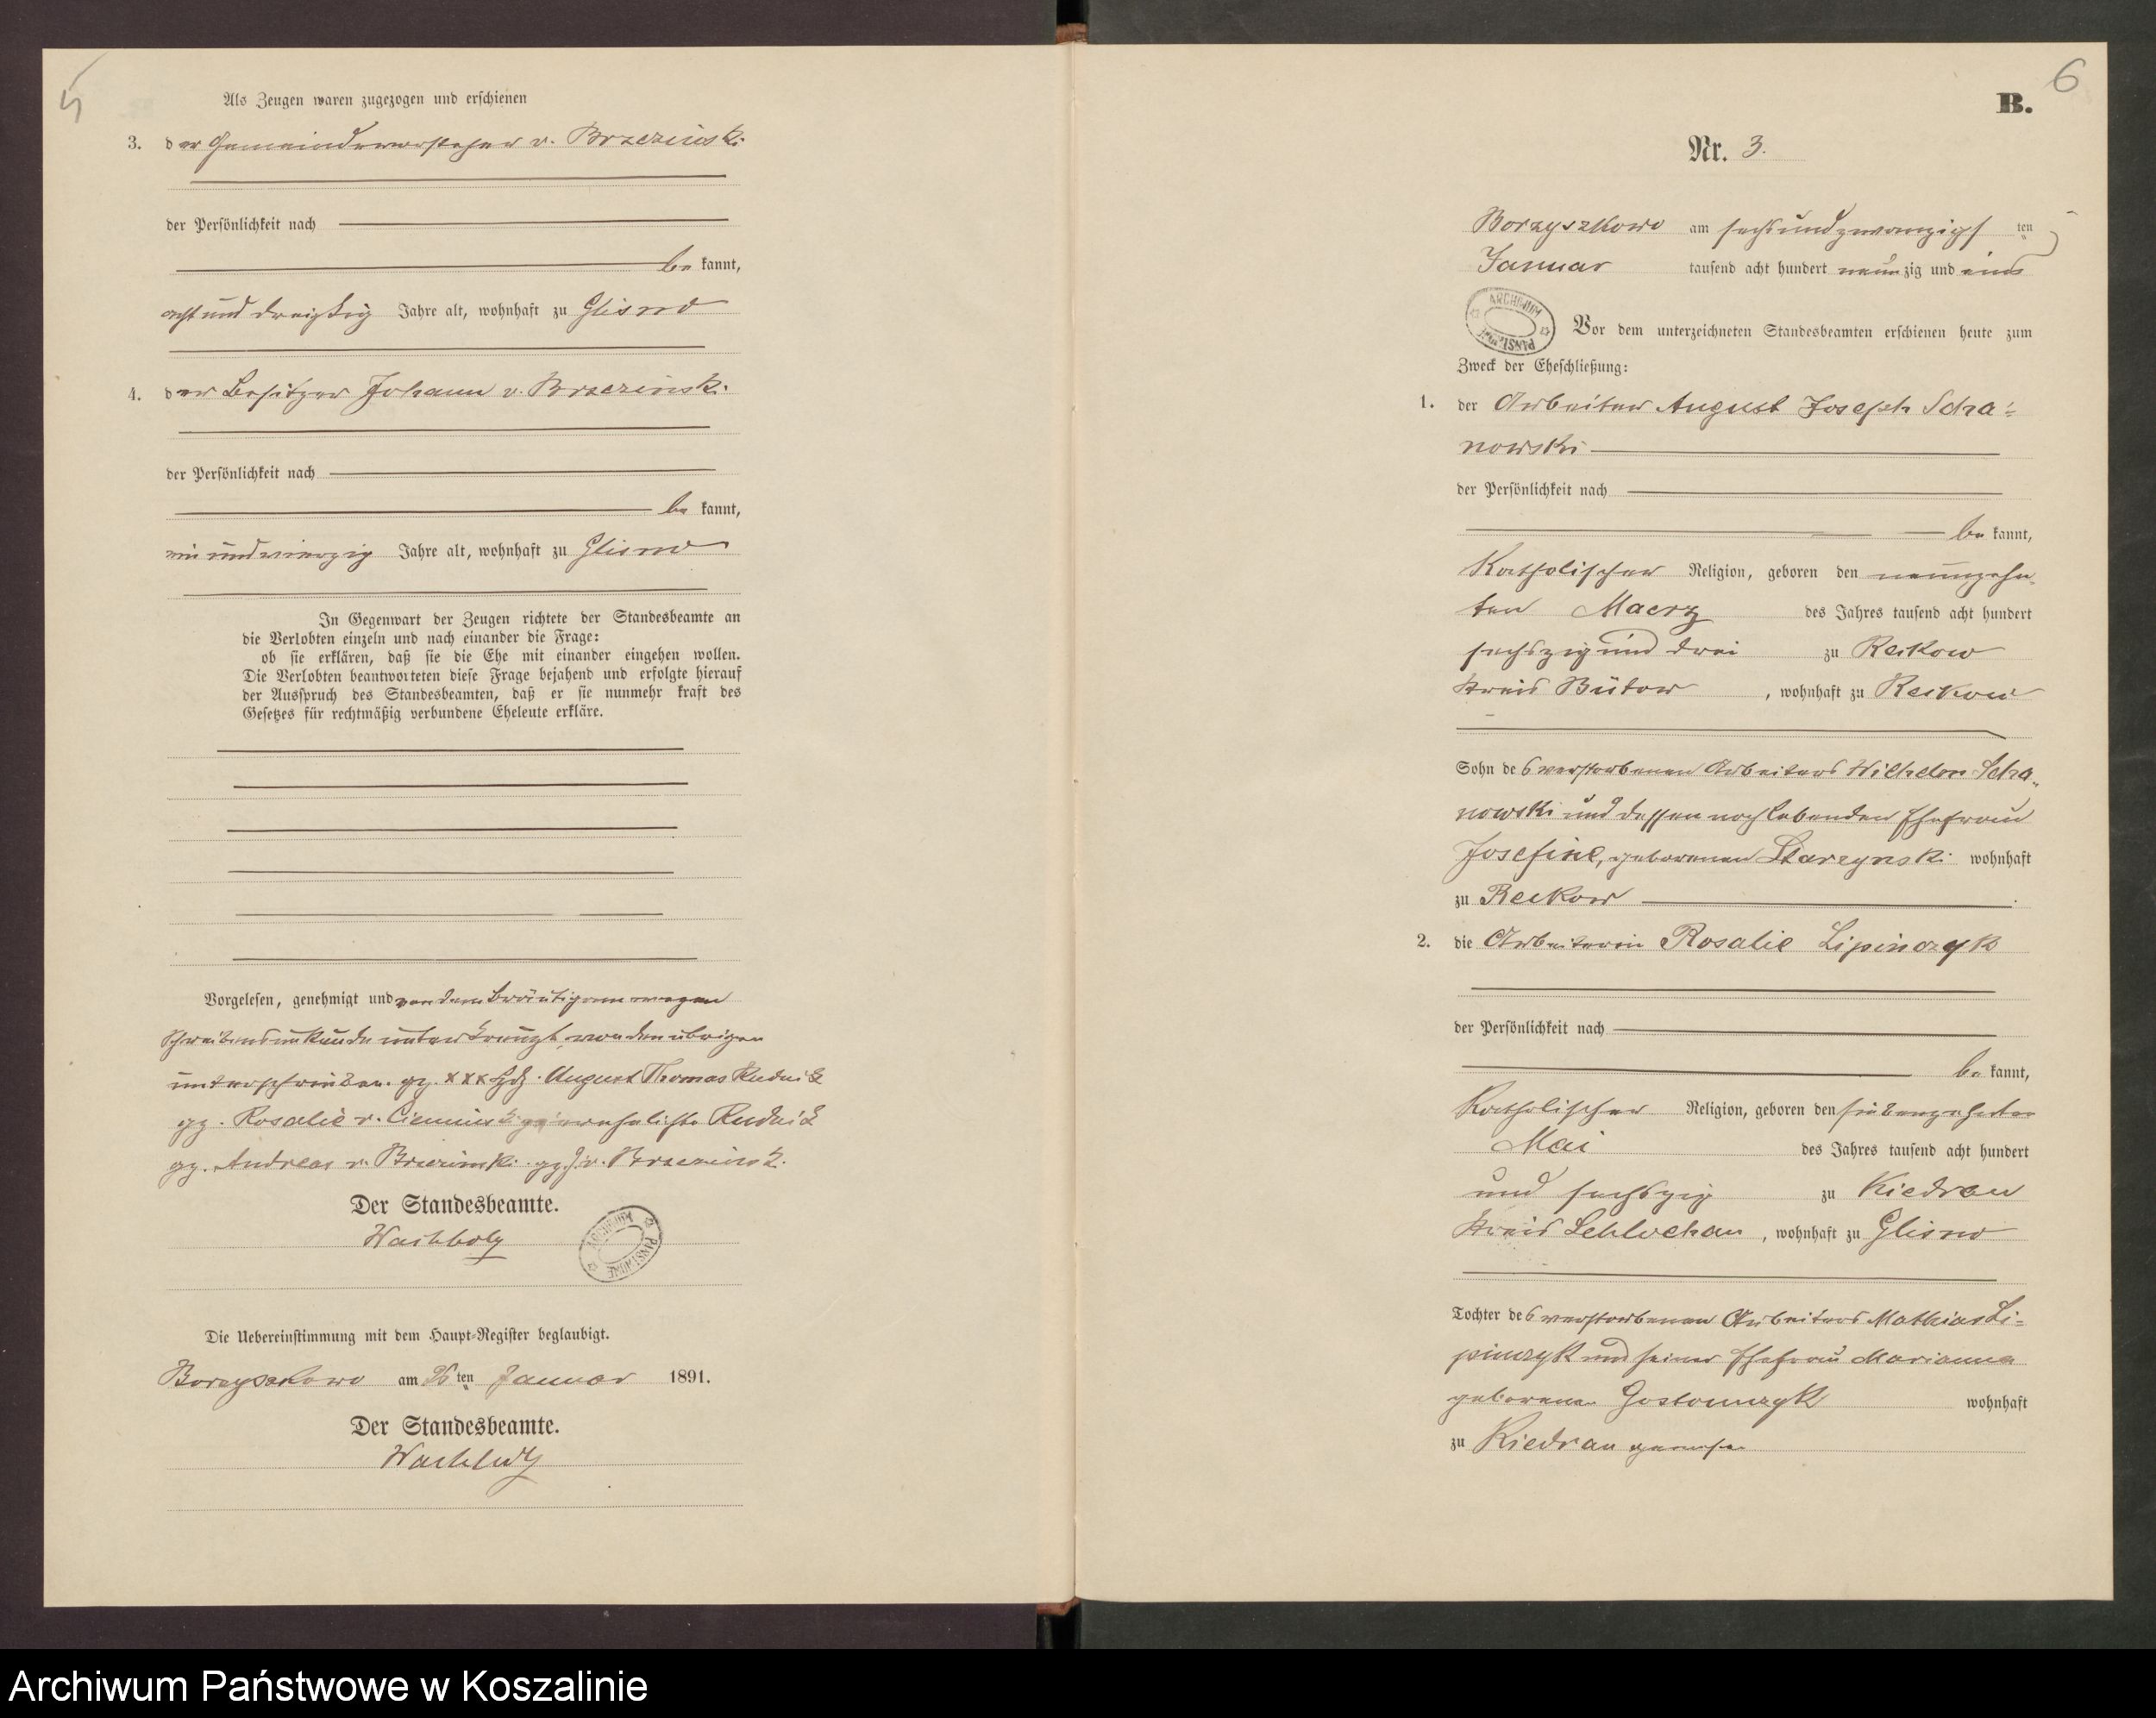 5
Als Zeugen waren zugezogen und erschienen
3. der Gemeindevorsteher v. Brzezinski
der Persönlichkeit nach
be kannt,
acht und dreißig Jahre alt, wohnhaft zu Glisno
4. der Besitzer Johann v. Brzezinski
der Persönlichkeit nach
be kannt,
ein und vierzig Jahre alt, wohnhaft zu Glisno
In Gegenwart der Zeugen richtete der Standesbeamte an
die Verlobten einzeln und nach einander die Frage:
ob sie erklären, daß sie die Ehe mit einander eingehen wollen.
Die Verlobten beantworteten diese Frage bejahend und erfolgte hierauf
der Ausspruch des Standesbeamten, daß er sie nunmehr kraft des
Gesetzes für rechtmäßig verbundene Eheleute erkläre.
Vorgelesen, genehmigt und von dem Bräutigam wegen
Schreibensunkunde unterkreuzt, von den übrigen
unterschrieben. gz. xxx Hdz. August Thomas Rudnik
gz. Rosalie v. Cieminski verehelichte Rudnik
gz. Andreas v. Brzezinski. gz. J. v. Brzezinski.
Der Standesbeamte.
Wachholz
ARCHIWUM PAŃSTWOWE
Die Uebereinstimmung mit dem Haupt-Register beglaubigt.
Borzyszkowo am 26 ten Januar 1891.
Der Standesbeamte.
Wachholz
6
B.
Nr. 3.
Borzyszkowo am sechs und zwanzigs ten
Januar tausend acht hundert neun zig und eins
ARCHIWUM PAŃSTWOWE
Vor dem unterzeichneten Standesbeamten erschienen heute zum
Zweck der Eheschließung:
1. der Arbeiter August Joseph Scha-
nowski
der Persönlichkeit nach
be kannt,
Katholischer Religion, geboren den neunzehn-
ten Maerz des Jahres tausend acht hundert
sechszig und drei zu Reckow
Kreis Bütow, wohnhaft zu Reckow
Sohn des verstorbenen Arbeiters Wilhelm Scha-
nowski und dessen noch lebenden Ehefrau
Josefine, geborenen Starzynski wohnhaft
zu Reckow
2. die Arbeiterin Rosalie Lipinczyk
der Persönlichkeit nach
be kannt,
Katholischer Religion, geboren den siebenzehnten
Mai des Jahres tausend acht hundert
und sechszig zu Kiedrau
Kreis Schlochau, wohnhaft zu Glisno
Tochter des verstorbenen Arbeiters Mathias Li-
pinczyk und seiner Ehefrau Marianna
geborene Gostomczyk wohnhaft
zu Kiedrau gewesen
Archiwum Państwowe w Koszalinie